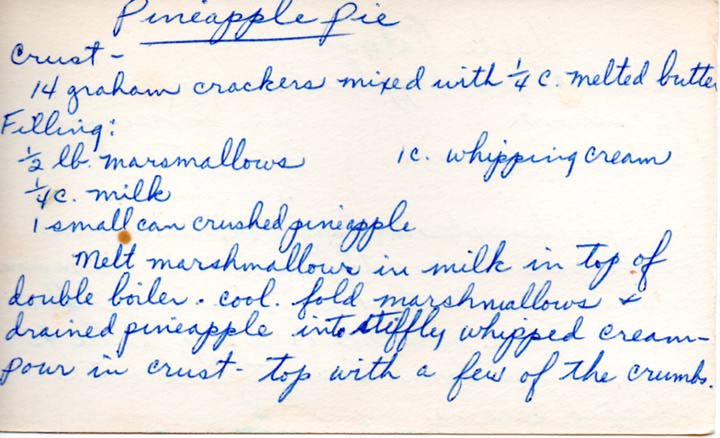 Pineapple Pie
Crust -
14 graham crackers mixed with 1/4 c. melted butter
Filling:
1/2 lb. marsmallows 1c. whipping cream
1/4 c. milk
1 small can crushed pineapple
Melt marshmallows in milk in top of
double boiler. cool. fold marshmallows &
drained pineapple into stiffly whipped cream-
pour in crust - top with a few of the crumbs.